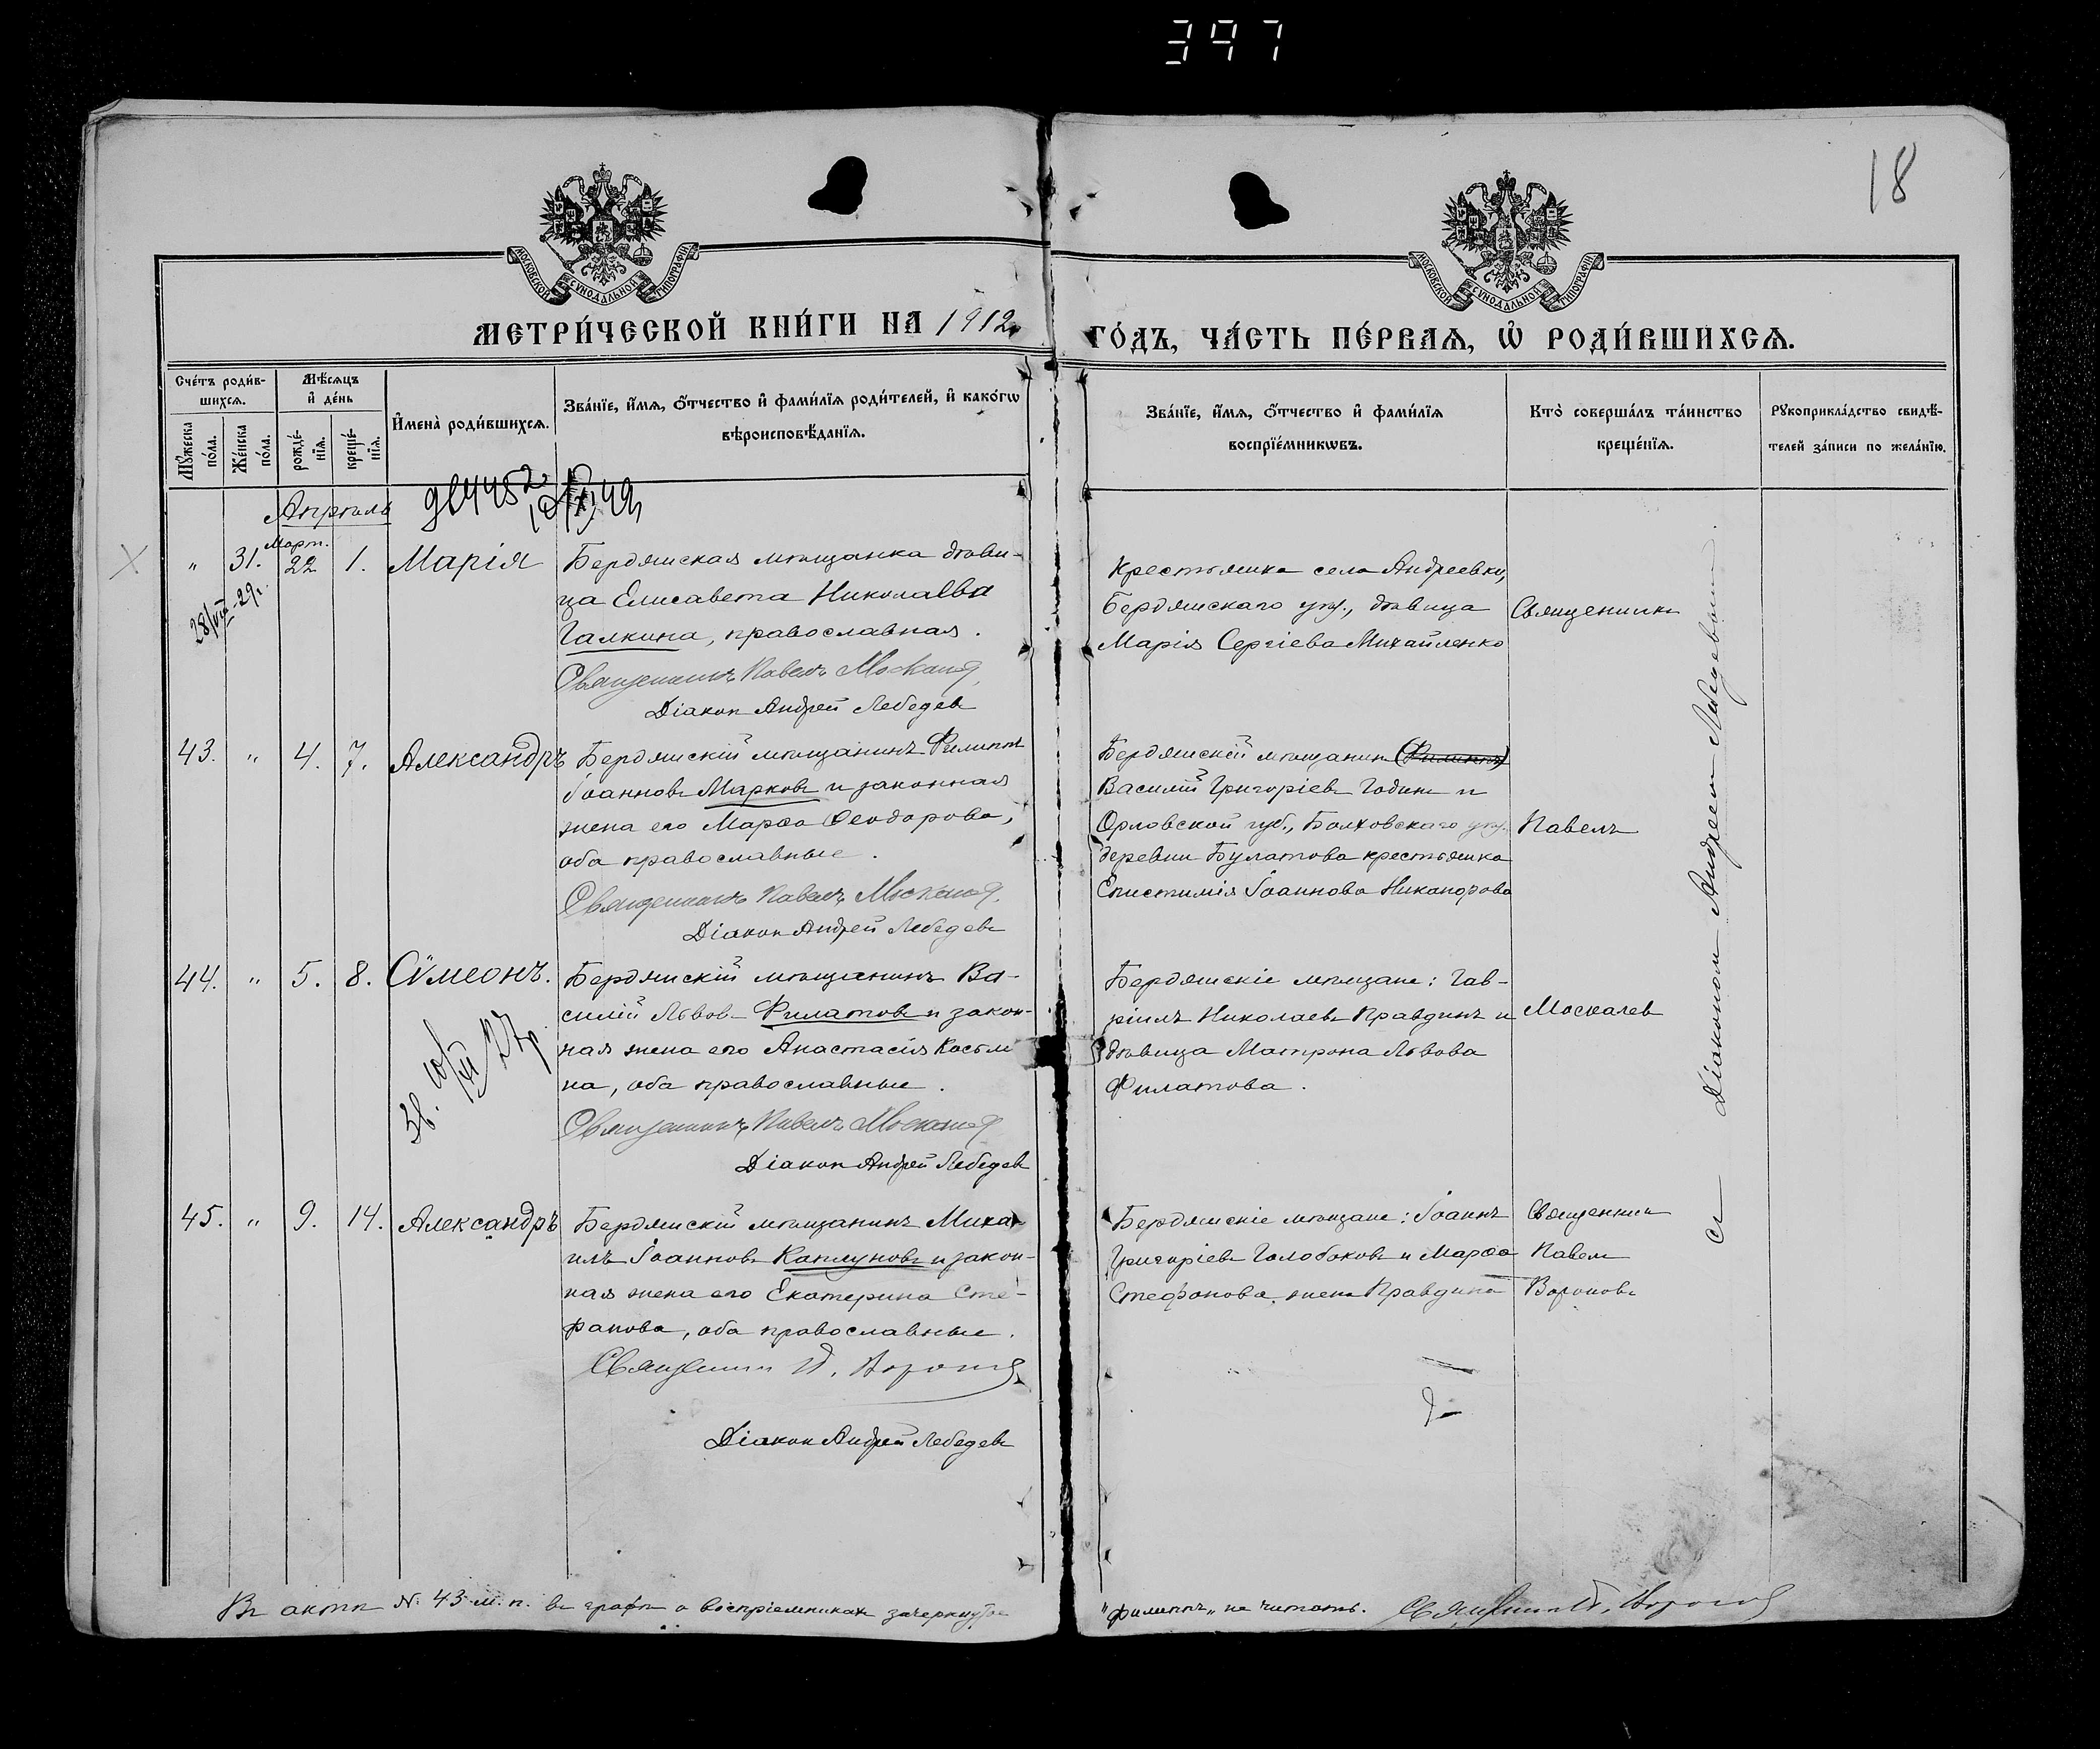 397
18
МОСКОВСКОЙ СУНОДАЛЬНОЙ ТИПОГРАФІИ
МОСКОВСКОЙ СУНОДАЛЬНОЙ ТИПОГРАФІИ
МЕТРИ́ЧЕСКОЙ КНИ́ГИ НА 1912
ГО́ДЪ, ЧА́СТЬ ПЕ́РВАѦ, Ѽ РОДИ́ВШИХСѦ.
Сче́тъ роди́в-
шихсѧ.
Мѣ́сѧцъ
и҆ де́нь
Мꙋ́жеска
по́ла.
Же́нска
по́ла.
рожде́-
нїѧ.
креще́-
нїѧ.
И҆мена̀ роди́вшихсѧ.
Зва́нїе, и҆́мѧ, ѻ҆́тчество и҆ фами́лїѧ роди́телей, и҆ како́гѡ
вѣроисповѣ́данїѧ.
Зва́нїе, и҆́мѧ, ѻ҆́тчество и҆ фами́лїѧ
воспрїе́мникѡвъ.
Кто̀ соверша́лъ та́инство
креще́нїѧ.
Рꙋкоприкла́дство свидѣ́-
телей за́писи по жела́нїю.
Апрѣль
Март.
" 31. 22 1. Марія
28/VIII-29г.
Бердянская мѣщанка дѣви-
ца Елисавета Николаева
Галкина, православная.
Священникъ Павелъ Москалев
Діакон Андрей Лебедев
Крестьянка села Андреевки,
Бердянскаго уѣз., дѣвица
Марія Сергіева Михайленко
Священник
43. " 4. 7. Александръ
Бердянскій мѣщанинъ Филиппъ
Іоаннов Марков и законная
жена его Марѳа Ѳеодорова,
оба православные.
Священникъ Павелъ Москалев
Діакон Андрей Лебедев
Бердянскій мѣщанин (Филиппъ)
Василій Григоріев Годин и
Орловской губ., Болховскаго уѣз.
деревни Булатова крестьянка
Епистимія Іоаннова Никанорова
Павелъ
44. " 5. 8. Сѵмеонъ.
Бердянскій мѣщанинъ Ва-
силій Львов Филатов и закон-
ная жена его Анастасія Косьми-
на, оба православные.
Священникъ Павелъ Москалев
Діакон Андрей Лебедев
Бердянскіе мѣщане: Гав-
ріилъ Николаев Правдинъ и
дѣвица Матрона Львова
Филатова.
Москалев
45. " 9. 14. Александръ
Бердянскій мѣщанинъ Миха-
илъ Іоаннов Каплунов и закон-
ная жена его Екатерина Сте-
фанова, оба православные.
Священник П. Воронов
Діакон Андрей Лебедев
Бердянскіе мѣщане: Іоаннъ
Григоріев Голобоков и Марѳа
Стефанова, жена Правдина
Священник
Павел
Воронов
съ Діаконом Андреем Лебедевым.
Въ актѣ № 43 м. п. въ графѣ о воспріемниках зачеркнутое
"Филиппъ" не читать. Священник П. Воронов